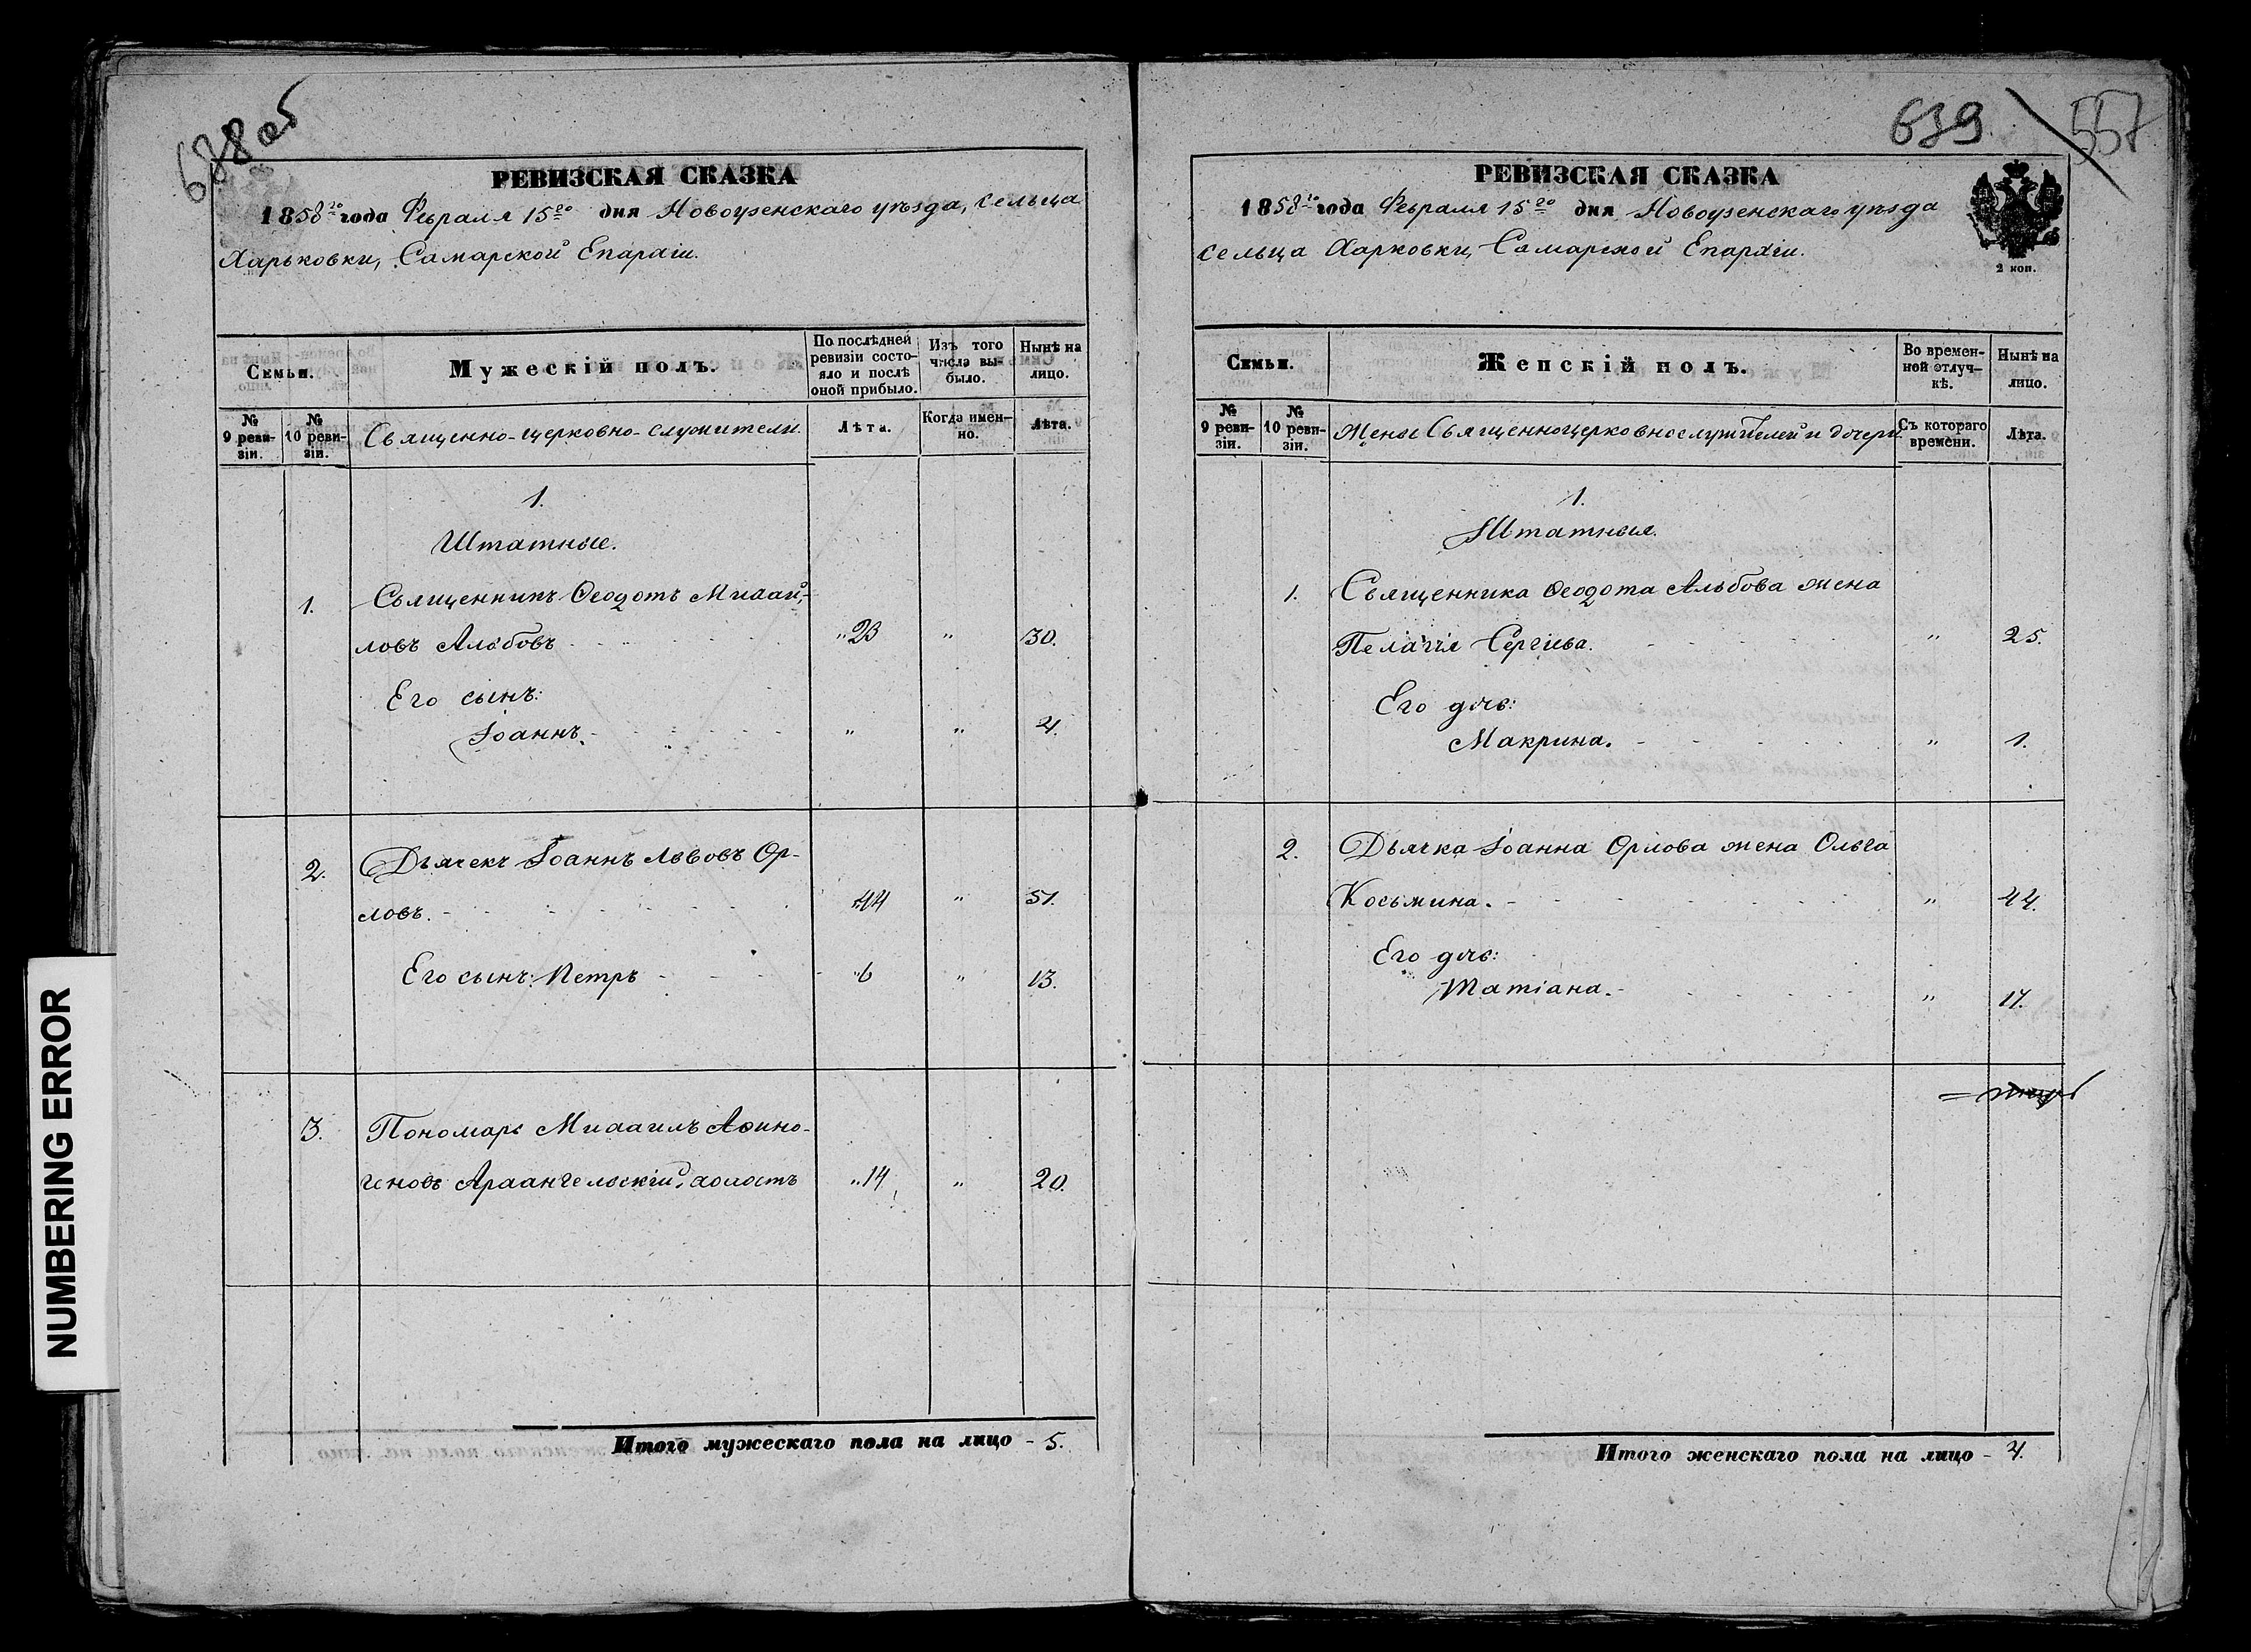 688 об
РЕВИЗСКАЯ СКАЗКА
1858го года Февраля 15го дня Новоузенскаго уѣзда, сельца
Харьковки, Самарской Епархіи.
Семьи.
Мужескій полъ.
По послѣдней ревизіи состояло и послѣ оной прибыло.
Изъ того числа выбыло.
Нынѣ на лицо.
№ 9 ревизіи.
№ 10 ревизіи.
Священно-церковно-служители.
Лѣта.
Когда именно.
Лѣта.
1.
Штатные.
1. Священникъ Ѳеодотъ Михаи-
ловъ Альбовъ " 23 " 30.
Его сынъ:
Іоаннъ. " " 4.
2. Дьячекъ Іоаннъ Львовъ Ор-
ловъ. "44 " 51.
Его сынъ: Петръ "6 " 13.
3. Пономарь Михаилъ Аѳино-
геновъ Архангельскій, холостъ "14 " 20.
Итого мужескаго пола на лицо - 5.
639
557
РЕВИЗСКАЯ СКАЗКА
1858го года Февраля 15го дня Новоузенскаго уѣзда
сельца Харковки, Самарской Епархіи.
2 коп.
Семьи.
Женскій полъ.
Во временной отлучкѣ.
Нынѣ на лицо.
№ 9 ревизіи.
№ 10 ревизіи.
Жены Священноцерковнослужителей и дочери.
Съ котораго времени.
Лѣта.
1.
Штатныя.
1. Священника Ѳеодота Альбова жена
Пелагія Сергіева. " 25.
Его дчь:
Макрина. " 1.
2. Дьячка Іоанна Орлова жена Ольга
Косьмина. " 44.
Его дчь:
Татіана. " 17.
Итого женскаго пола на лицо - 4.
NUMBERING ERROR